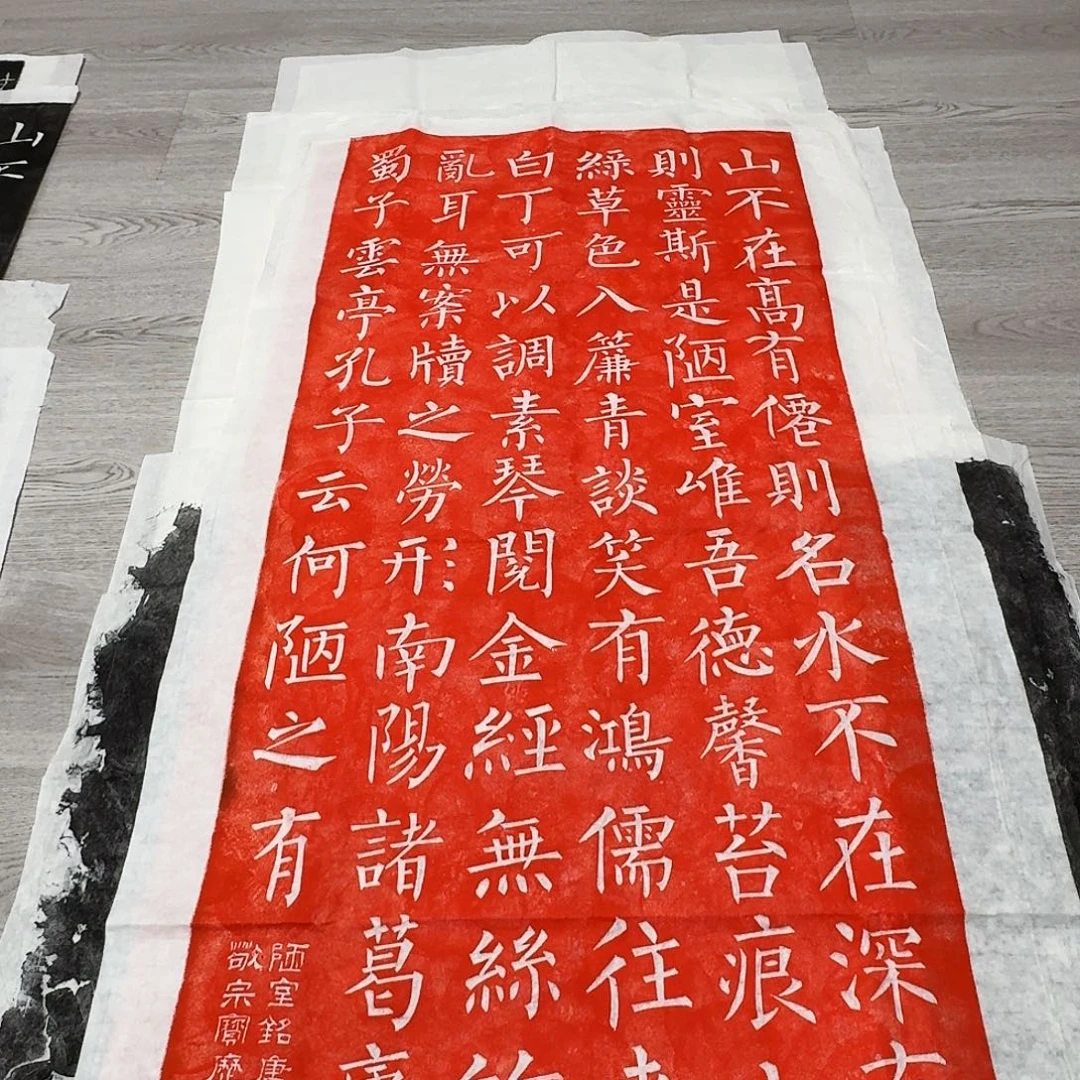 山不在髙有僊則名水不在深有
則靈斯是陋室唯吾德馨苔痕
綠草色入簾青談笑有鴻儒往
白丁可以調素琴閱金經無絲竹
亂耳無案牘之勞形南陽諸葛
蜀子雲亭孔子云何陋之有
陋室銘唐
敬宗寶歷
山